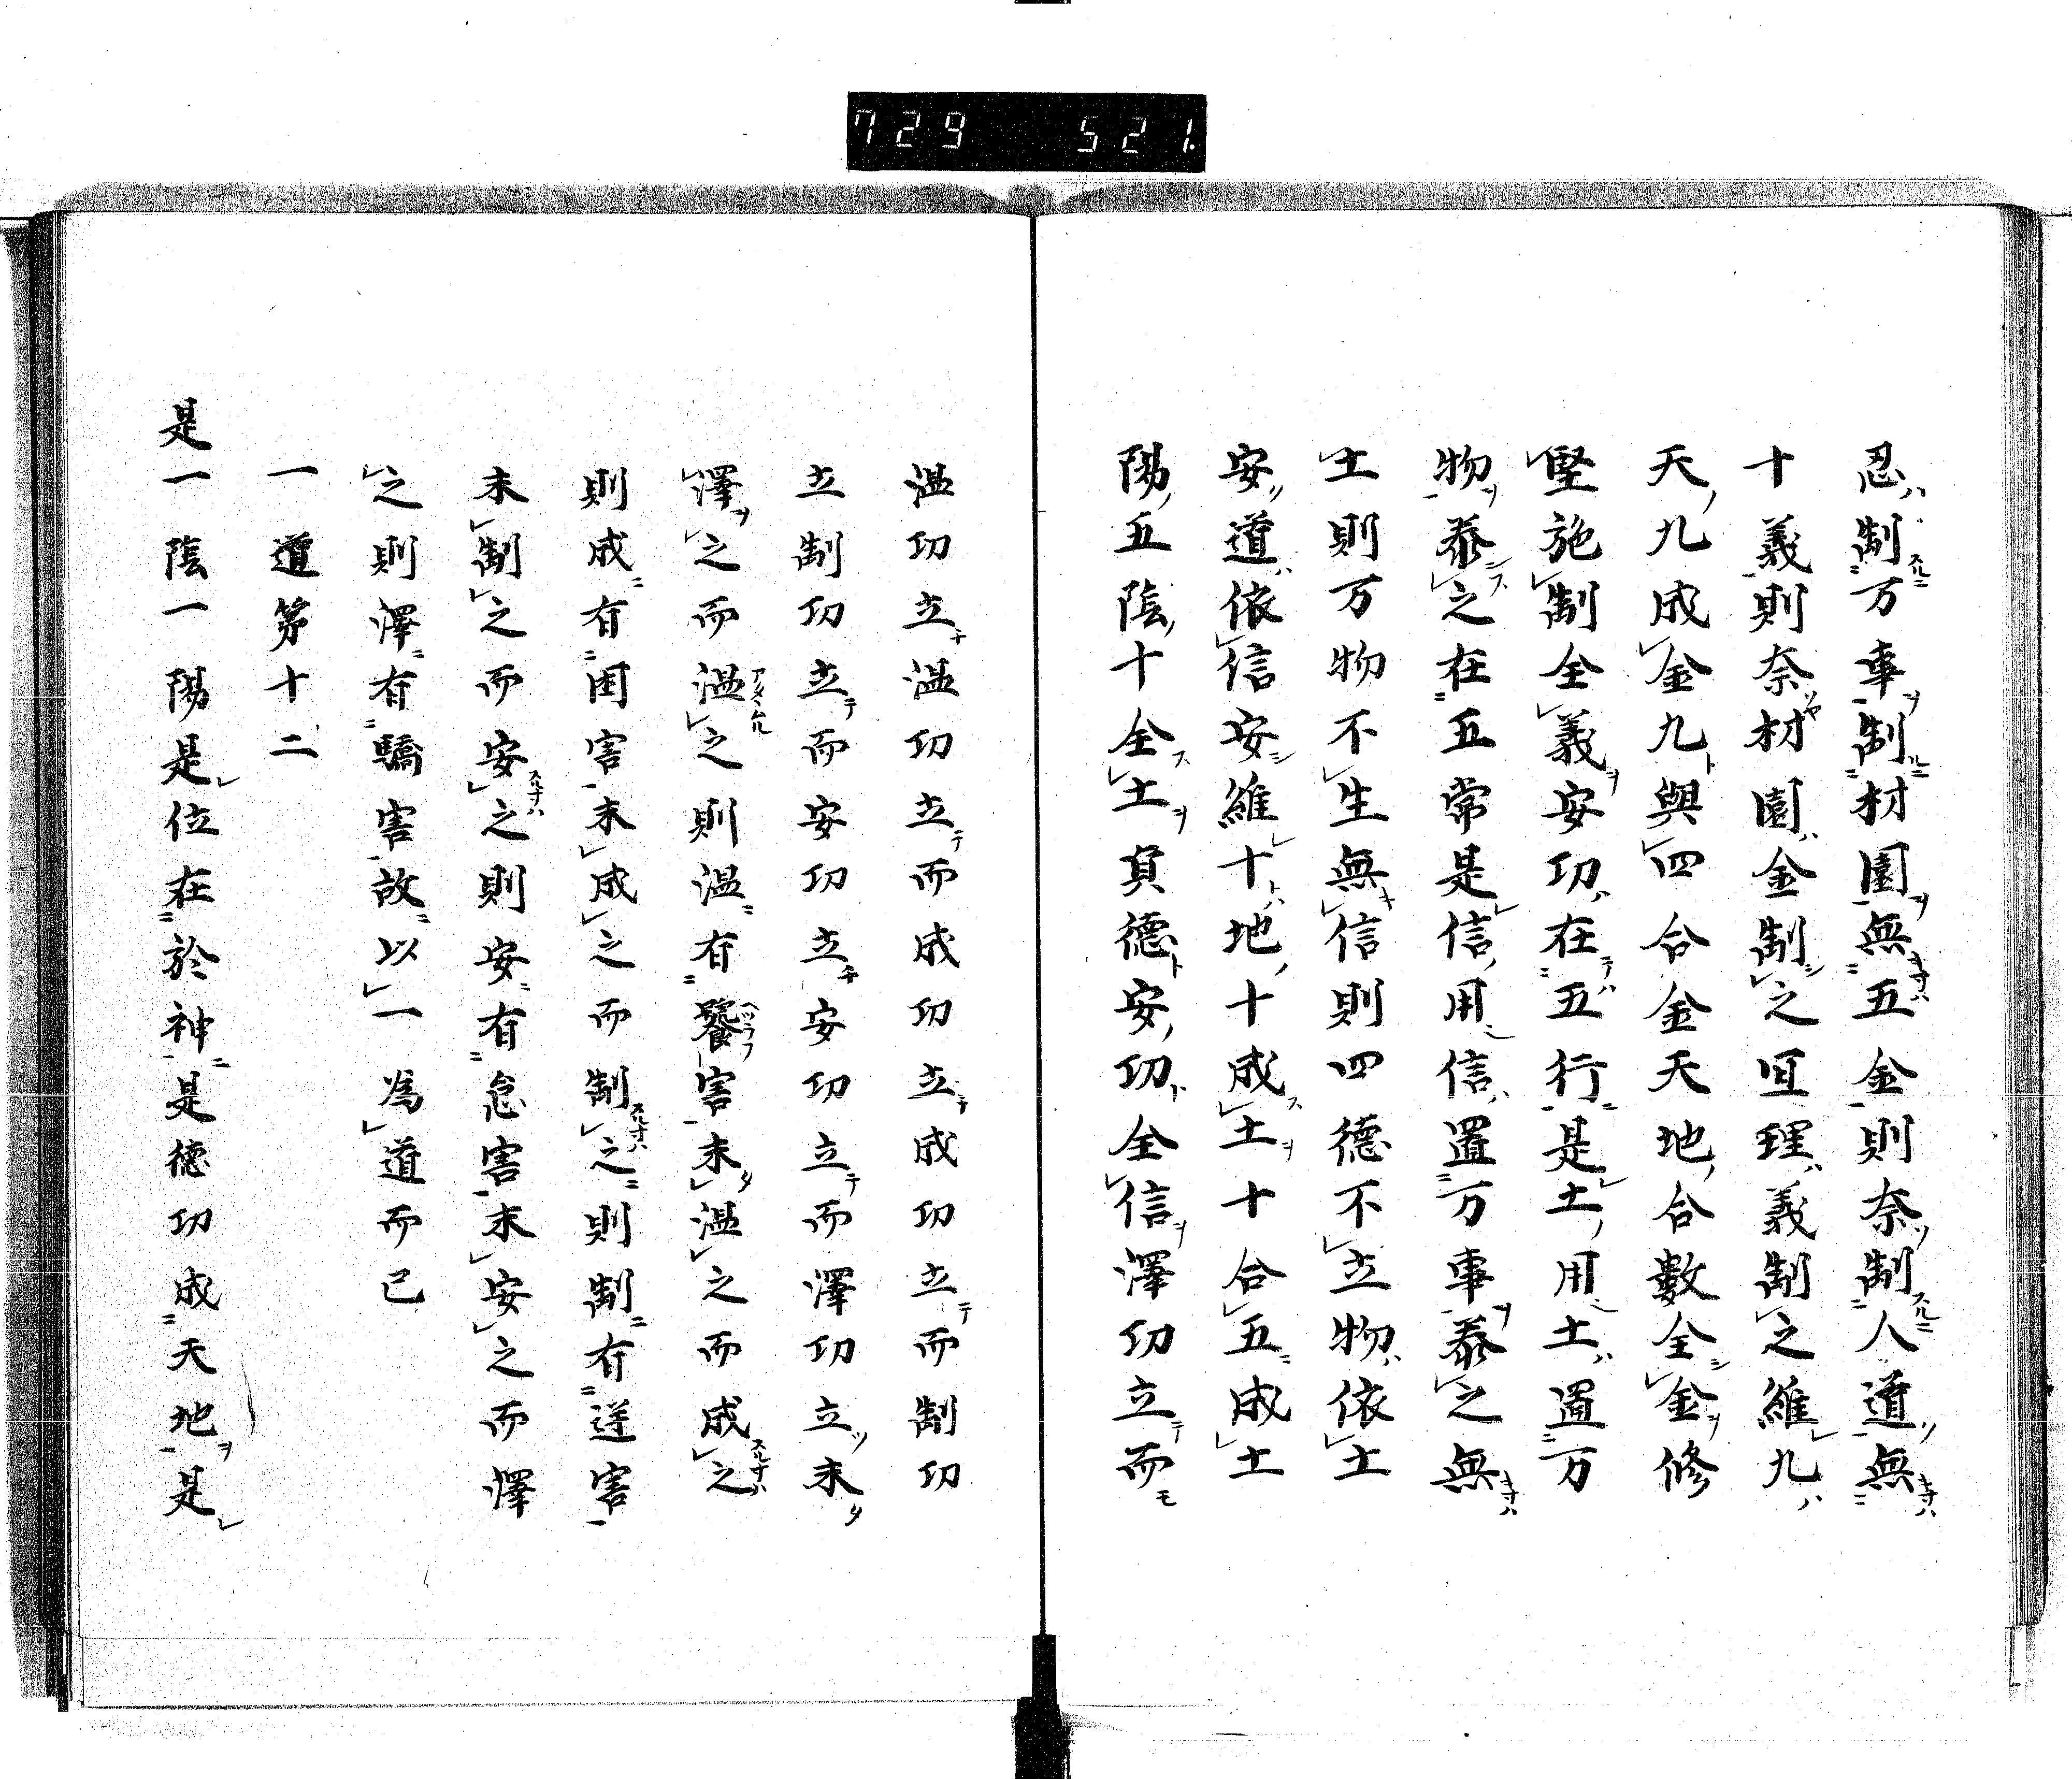 729 521.
忍制万車制材園無五金則奈制人道無
十義則奈材園金制之宜理義制之維九
天九成金九與四合金天地合數全金修
堅施制全義安功在五行是土用土置万
物泰之在五常是信用信置万事泰之無
土則万物不生無信則四德不立物依土
安道依信安維十地十成土十合五成土
陽五陰十全土貞德安功全信澤功立而
温功立温功立而成功立成功立而制功
立制功立而安功立安功立而澤功立末
澤之而温之則温有饕害末温之而成之
則成有困害末成之而制之則制有逆害
末制之而安之則安有怠害末安之而澤
之則澤有驕害故以一為道而已
一道第十二
是一陰一陽是位在於神是德功成天地是